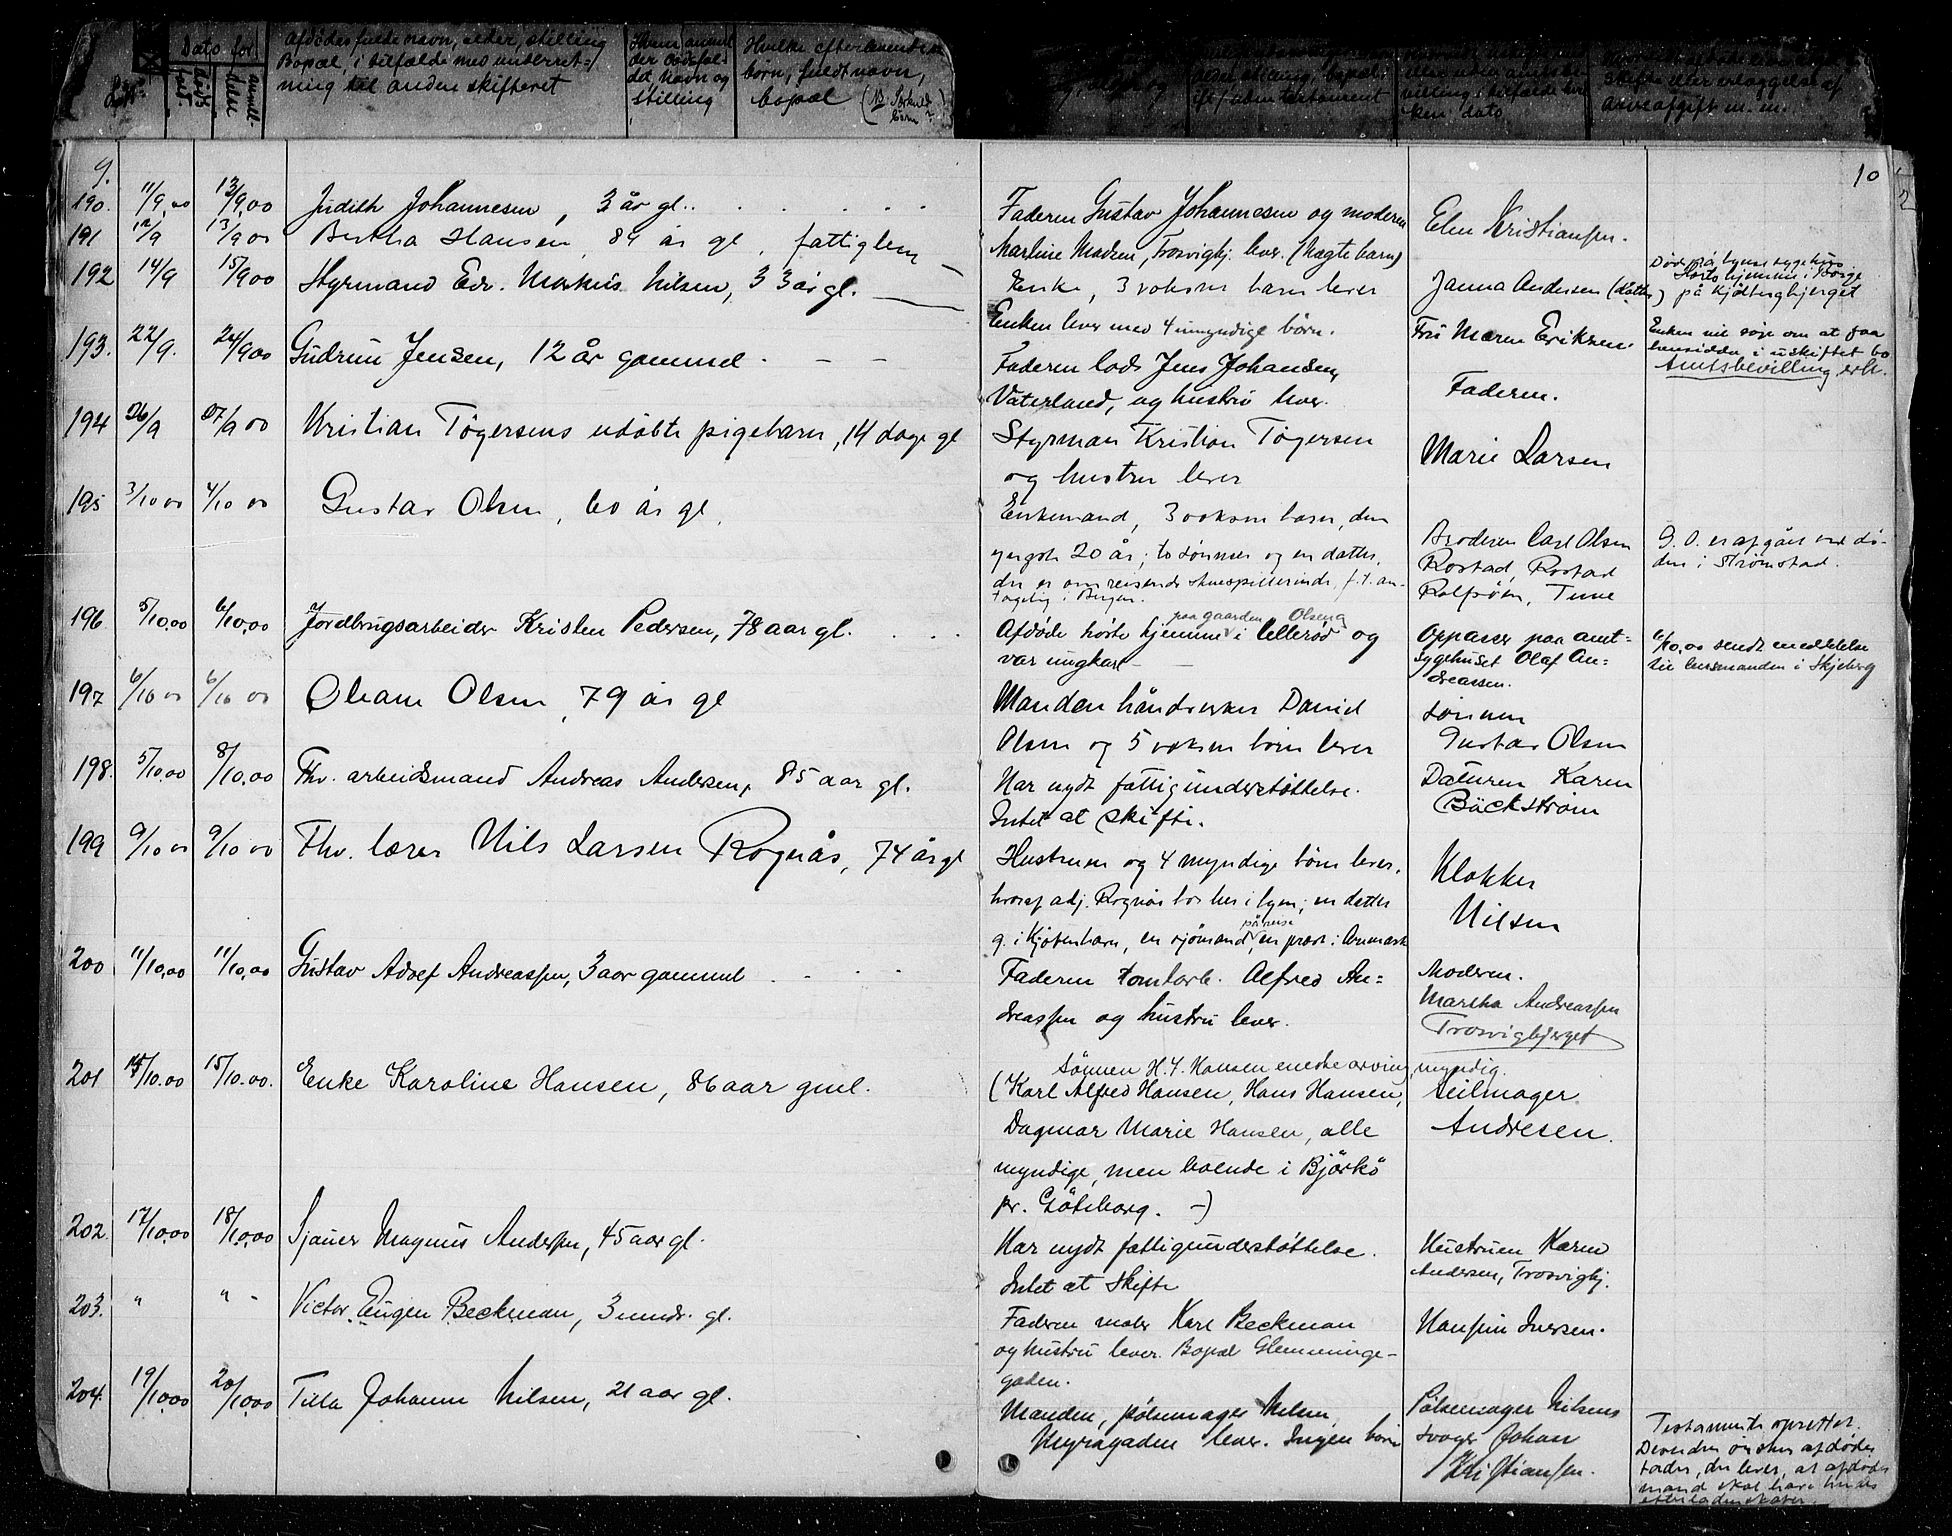 Dato for
Løbe no.
døds-
fald.
anmeldelse
Afdødes fulde navn, alder, stilling
Bopæl, i tilfælde med underret-
ning til anden skifteret
Hvem anmel-
der dødsfal-
det. Navn og
stilling
Hvilke efterlevende
børn, fuldt navn,
bopæl
skifte eller erlæggelse af
arveafgift m. m.
9.
10
190. 11/9.00 13/9.00 Judith Johannesen, 3 år gl.
Faderen Gustav Johannesen og moderen
Martine Madsen, Trosvigbj. lever. (Uægte barn)
Elen Kristiansen.
191 12/9 13/9 00 Bertha Hansen, 89 år gl, fattiglem
Enke, 3 voksne barn lever
Janna Andersen (datter)
Døde på byens sygehus
på Kjölbergbjerget
192 14/9 15/9 00 Styrmand Edv. Markus Nilsen, 33 år gl.
Enken lever med 4 umyndige børn.
Fru Maren Eriksen.
Enken vil søge om at faa
hensidde i uskiftet bo
Amtsbevilling erh.
193. 22/9. 24/9 00 Gudrun Jensen, 12 år gammel
Faderen lods Jens Johansen,
Vaterland, og hustru lever.
Faderen.
194 26/9 27/9 00 Kristian Tögersens udöbte pigebarn, 14 dage gl
Styrman Kristian Tögersen
og hustru lever
Marie Larsen
195 3/10 00 4/10 00 Gustav Olsen, 60 år gl.
Enkemand, 3 voksne barn, den
yngste 20 år; to sönner og en datter,
der er omreisende skuespillerinde, f. t. an-
tagelig i Bergen.
Broderen Carl Olsen
Rostad, Rostad
Rolfsöen, Tune
G. O. er afgået ved dö-
den i Strömstad.
196 5/10.00 6/10.00 Jordbrugsarbeider Kristen Pedersen, 78 aar gl.
paa gaarden Olseng
Afdøde hörte hjemme i Ullerød og
var ungkarl
Oppasser paa amt-
sygehuset Olaf An-
dreassen.
6/10.00 sendt meddelelse
til lensmanden i Skjeberg
197 6/10 00 6/10 00 Oleane Olsen, 79 år gl
Manden håndverker David
Olsen og 5 voksne börn lever
sönnen
Gustav Olsen
198. 5/10.00 8/10.00 Fhv. arbeidsmand Andreas Andersen, 85 aar gl.
Har nydt fattigunderstöttelse.
Intet at skifte.
Datteren Karen
Bäckström
199 9/10 00 9/10 00 Fhv. lærer Nils Larsen Rognås, 74 år gl
Hustruen og 4 myndige börn lever,
hvoraf adj. Rognås bor her i byen; en datter
g. i Kjöbenhavn, en sjömand på reise, en præst i Danmark
Klokker
Nilsen
200 11/10.00 11/10.00 Gustav Adolf Andreassen, 3 aar gammel
Faderen tomtarb. Alfred An=
dreassen og hustru lever.
Moderen.
Martha Andreassen
Trosvigbjerget
201 14/10.00 15/10.00. Enke Karoline Hansen, 86 aar gml.
Sönnen H. Y. Hansen eneste arving, myndig.
(Karl Alfred Hansen, Hans Hansen,
Dagmar Marie Hansen, alle
myndige, men boende i Björkö
pr. Göteborg. -)
Seilmager
Andresen.
202. 17/10.00 18/10.00 Sjauer Magnus Andersen, 45 aar gl.
Har nydt fattigunderstöttelse.
Intet at skifte
Hustruen Karen
Andersen, Trosvigbj.
203. " " - Victor Eugen Beckman, 3 mndr. gl.
Faderen maler Karl Beckman
og hustru lever. Bopæl Glemminge-
gaden.
Hansine Iversen.
204. 19/10.00 20/10.00 Tilla Johanne Nilsen, 21 aar gl.
Manden, pölsemager Nilsen,
Nygaagaden lever. Ingen barn
Pölsemager Nilsens
svoger Johan
Kristiansen.
Testamente oprettet.
Desuden önsker afdødes
fader, der lever, at afdødes
mand skal have hendes
efterladenskaber.